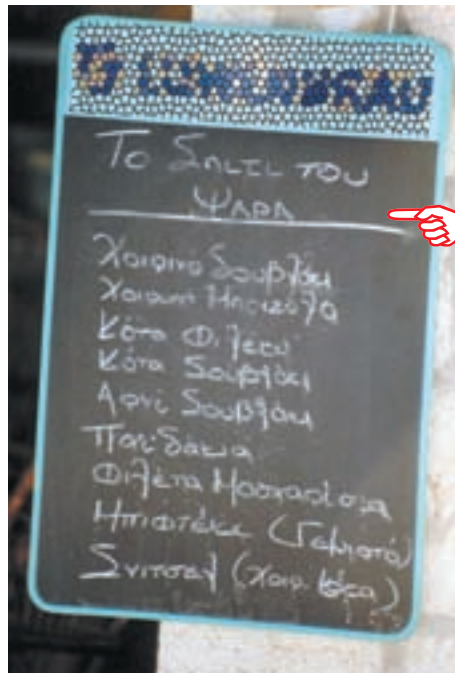 LÖWENBRÄU
Το Σπιτι του
ΨΑΡΑ
Χοιρινο Σουβλάκι
Χοιρινη Μπριζόλα
Κότα Φιλέτο
Κότα Σουβλάκι
Αρνί Σουβλάκι
Παϊδάκια
Φιλέτα Μοσχαρίσια
Μπιφτέκι (Γεμιστό)
Σνιτσελ (Χοιρ.